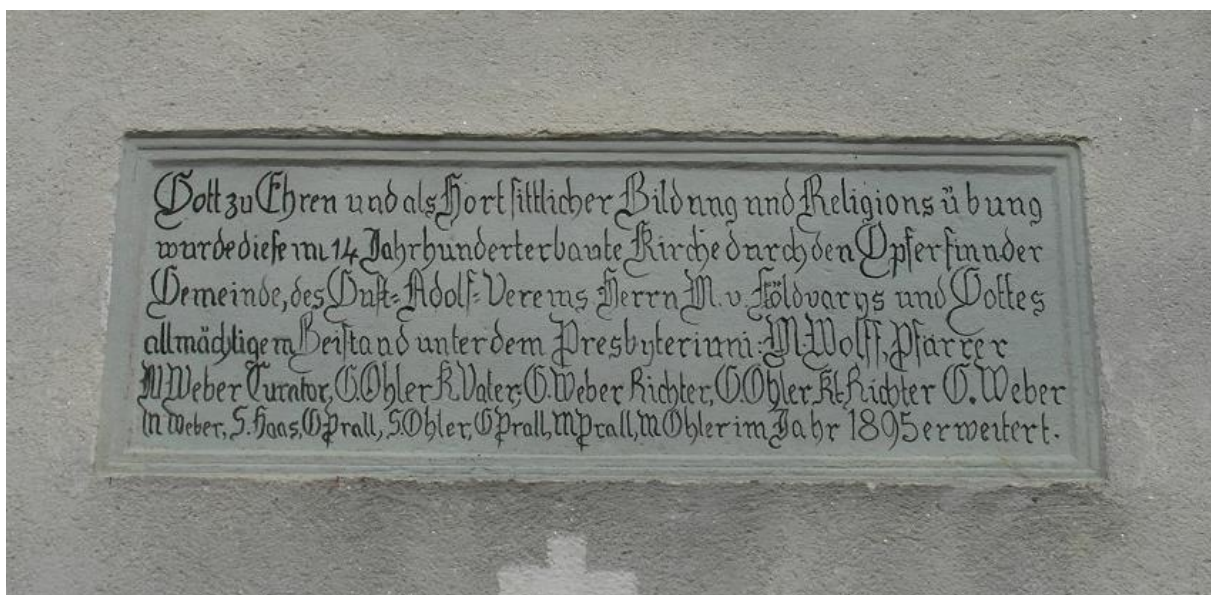 Gott zu Ehren und als Hort sittlicher Bildung und Religions übung
wurde diese im 14 Jahrhundert erbaute Kirche durch den Opfersinn der
Gemeinde, des Gust=Adolf=Vereins Herrn M. v. Földvarys und Gottes
allmächtigem Beistand unter dem Presbyterium: M. Wolff, Pfarrer
M Weber Curator, G. Ohler K. Vater, G. Weber Richter, G. Ohler Kt. Richter G. Weber
M Weber, S. Haas, G Prall, S. Ohler, G Prall, M Prall, M Ohler im Jahr 1895 erweitert.